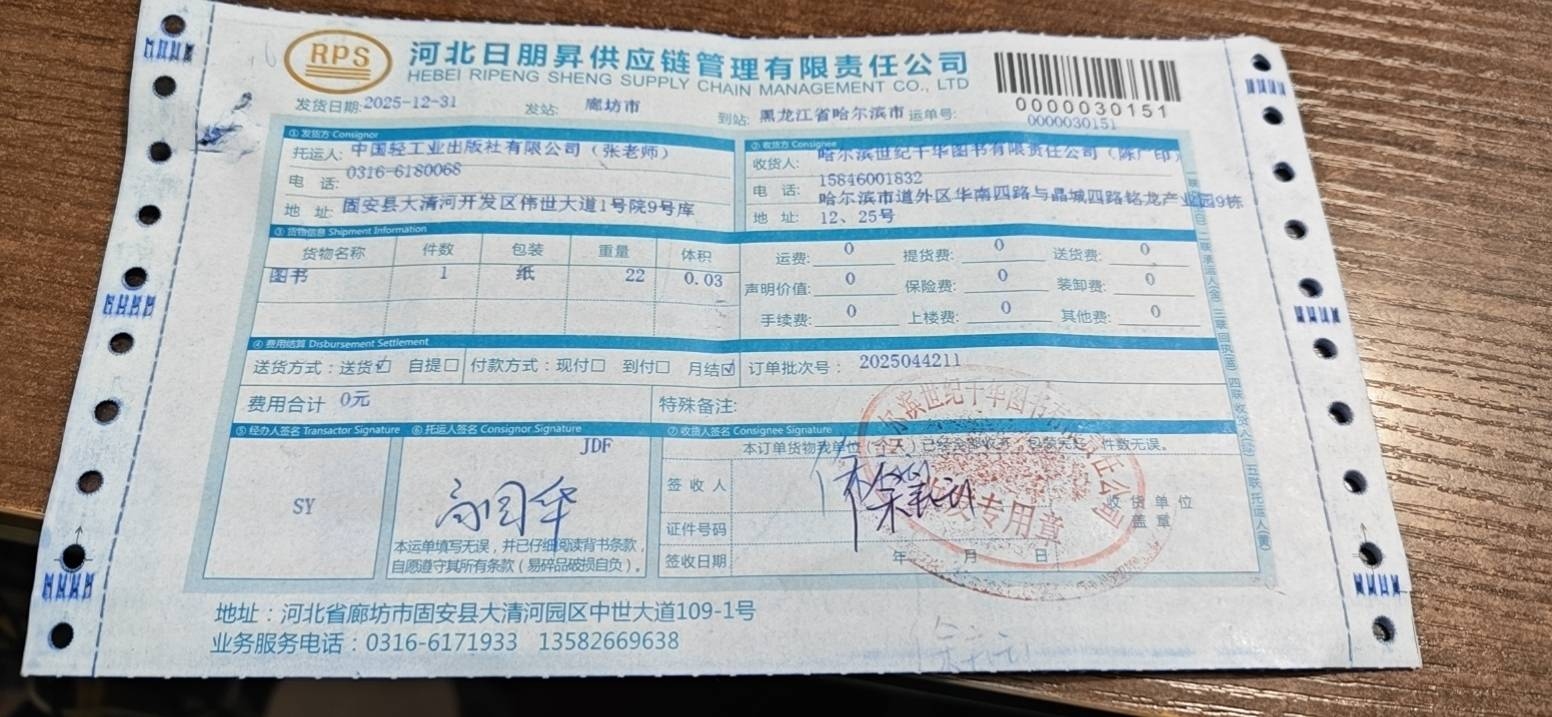 RPS
河北日朋昇供应链管理有限责任公司
HEBEI RIPENG SHENG SUPPLY CHAIN MANAGEMENT CO., LTD
0000030151
发货日期:2025-12-31 发站: 廊坊市 到站: 黑龙江省哈尔滨市 运单号: 0000030151
① 发货方 Consignor
托运人: 中国轻工业出版社有限公司（张老师）
电 话: 0316-6180068
地 址: 固安县大清河开发区伟世大道1号院9号库
② 收货方 Consignee
收货人: 哈尔滨世纪千华图书有限责任公司（陈广印）
电 话: 15846001832
哈尔滨市道外区华南四路与晶城四路铭龙产业园9栋
地 址: 12、25号
③ 货物信息 Shipment Information
货物名称 件数 包装 重量 体积
图书 1 纸 22 0.03
运费: 0 提货费: 0 送货费: 0
声明价值: 0 保险费: 0 装卸费: 0
手续费: 0 上楼费: 0 其他费: 0
④ 费用结算 Disbursement Settlement
送货方式：送货☑ 自提☐ 付款方式：现付☐ 到付☐ 月结☑ 订单批次号： 2025044211
费用合计 0元 特殊备注:
⑤ 经办人签名 Transactor Signature ⑥ 托运人签名 Consignor Signature ⑦ 收货人签名 Consignee Signature
SY
JDF
本运单填写无误，并已仔细阅读背书条款，
自愿遵守其所有条款（易碎品破损自负）。
本订单货物我单位（个人）已经全部收齐，包装完好，件数无误。
签 收 人
证件号码
签收日期 年 月 日
收 货 单 位
盖 章
专用章
地址：河北省廊坊市固安县大清河园区中世大道109-1号
业务服务电话：0316-6171933 13582669638